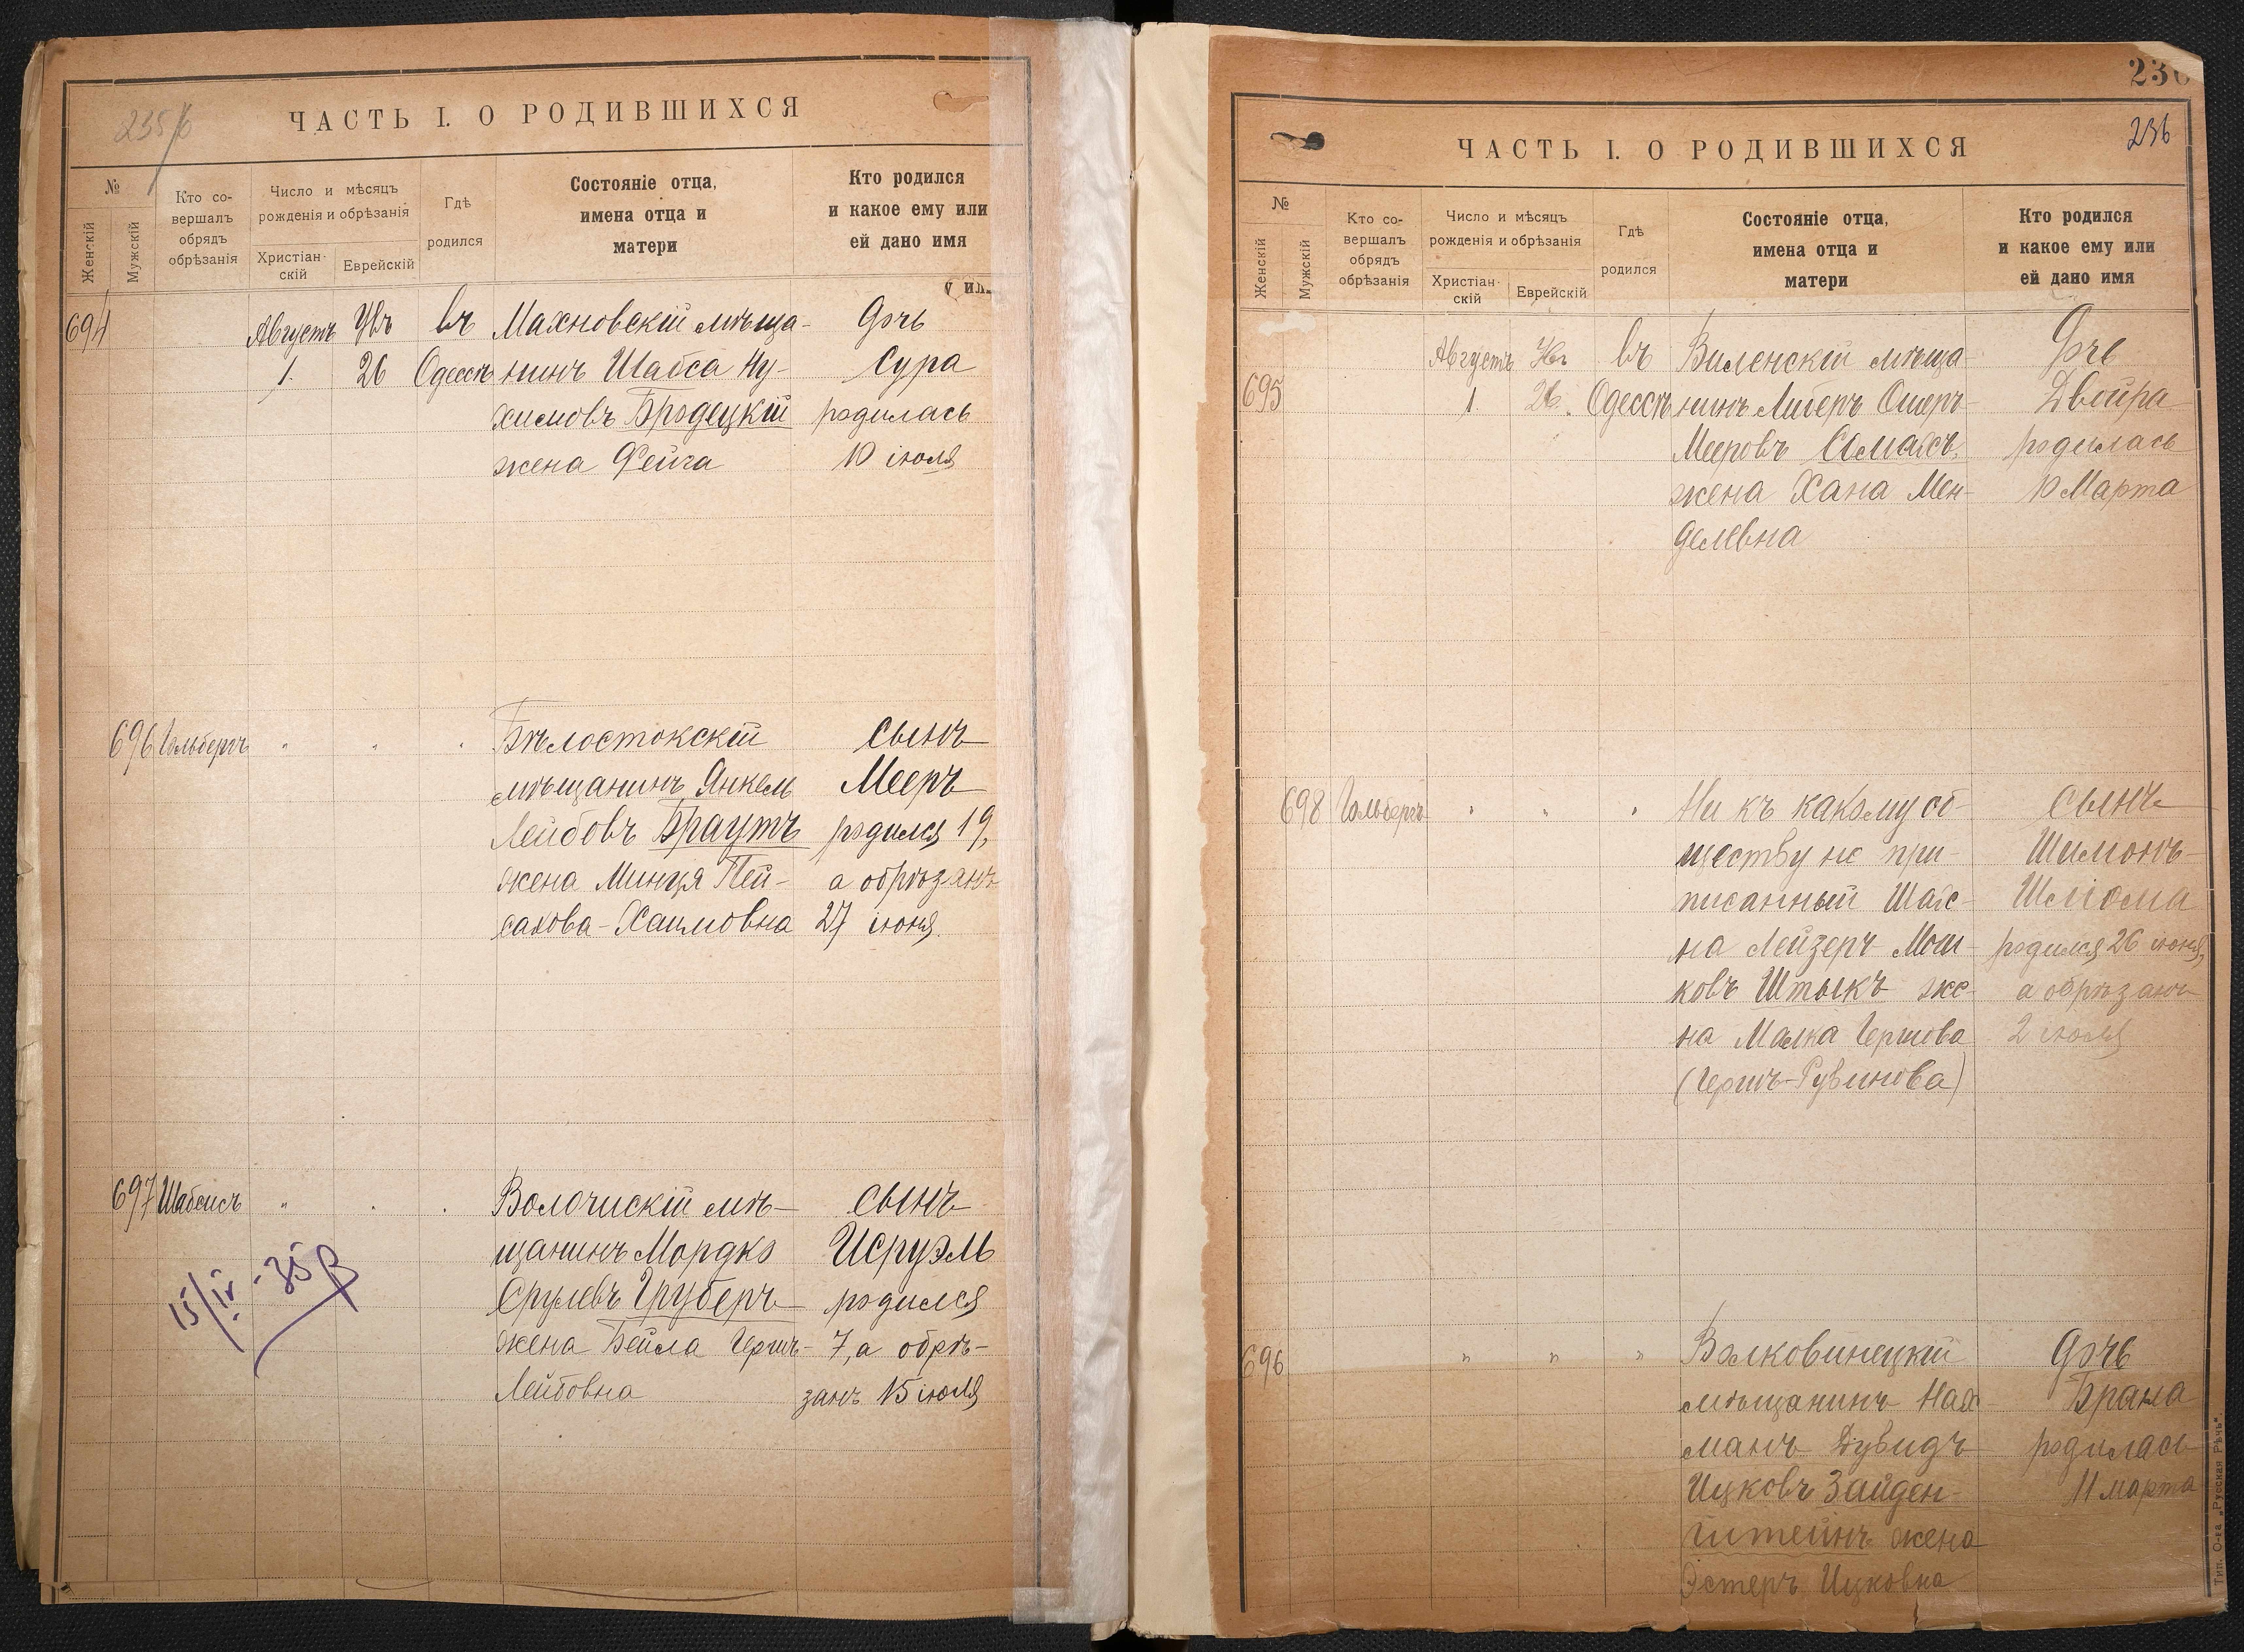 235/б
ЧАСТЬ I. О РОДИВШИХСЯ
№
Женскій
Мужскій
Кто со-
вершалъ
обрядъ
обрѣзанія
Число и мѣсяцъ
рожденія и обрѣзанія
Христіан-
скій
Еврейскій
Гдѣ
родился
Состояніе отца,
имена отца и
матери
Кто родился
и какое ему или
ей дано имя
694
Августъ
1.
26
въ
Одессѣ
Махновскій мѣща-
нинъ Шабса Ну-
химовъ Бродецкій
жена Фейга
Дочь
Сура
родилась
10 іюля
696 Гольбергъ " " "
Бѣлостокскій
мѣщанинъ Янкель
Лейбовъ Браутъ
жена Минця Пей-
сахова-Хаимовна
Сынъ
Мееръ
родился 19,
а обрѣзанъ
27 іюня.
697 Шабсисъ " " "
Волочискій мѣ-
щанинъ Мордко
Срулевъ Груберъ
жена Бейла Гершъ-
Лейбовна
сынъ
Исруэль
родился
7, а обрѣ-
занъ 15 іюля
15/IV-35
230
236
ЧАСТЬ I. О РОДИВШИХСЯ
№
Женскій
Мужскій
Кто со-
вершалъ
обрядъ
обрѣзанія
Число и мѣсяцъ
рожденія и обрѣзанія
Христіан-
скій
Еврейскій
Гдѣ
родился
Состояніе отца,
имена отца и
матери
Кто родился
и какое ему или
ей дано имя
695
Августъ
1.
26.
въ
Одессѣ
Виленскій мѣща-
нинъ Либеръ Ошеръ-
Мееровъ Смахъ,
жена Хана Мен-
делевна
Дочь
Двейра
родилась
10 Марта
698 Гольбергъ " " "
Ни къ какому об-
ществу не при-
писанный Шах-
на Лейзеръ Мош-
ковъ Штыкъ же-
на Малка Гершова
(Гершъ-Рувинова)
Сынъ
Шимонъ-
Шлiома
родился 26 іюня,
а обрѣзанъ
2 іюля
696 " " "
Волковинецкій
мѣщанинъ Нах-
манъ Дувидъ
Ицковъ Зайден-
штейнъ жена
Эстеръ Ицковна
Дочь
Брана
родилась
11 марта
Тип. О-ва „Русская Рѣчь".